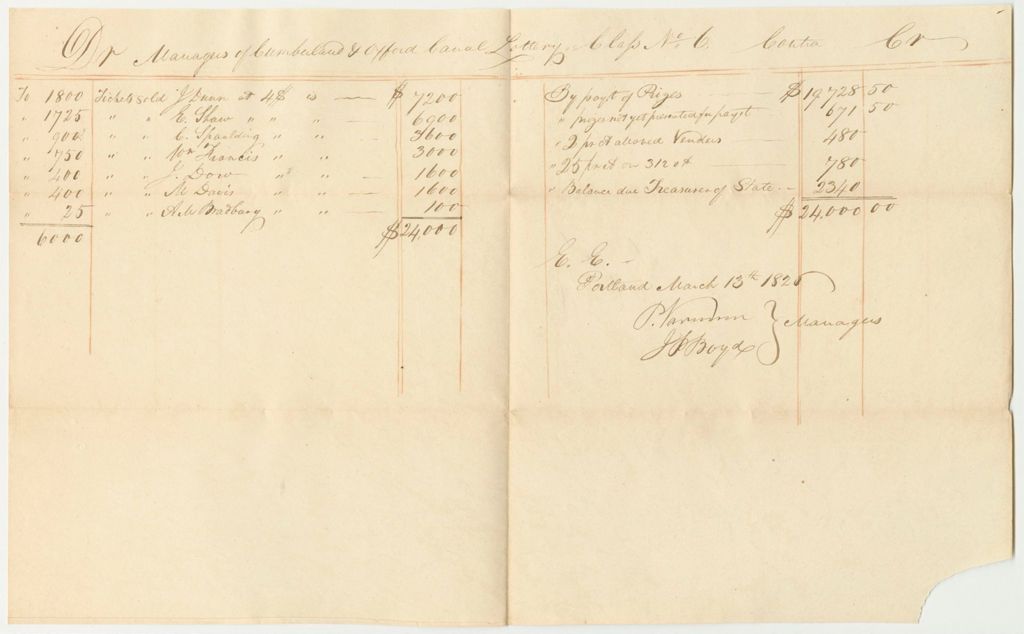 Dr Managers of Cumberland & Oxford Canal Lottery, Class No. 6. Contra Cr
To 1800 Tickets sold J Dunn at 4$ is $ 7200
" 1725 " " E. Shaw " " " 6900
" 900 " " C. Spaulding " " 3600
" 750 " " Wm Francis " " 3000
" 400 " " J. Dow " " 1600
" 400 " " M Davis " " 1600
" 25 " " A. M Bradbury " " 100
6000 $24,000
By payt of Prizes $19,728 50
" prizes not yet presented for payt 671 50
" 2 pr ct allowed Venders 480
" 25 pr ct on 3120$ 780
" Balance due Treasurer of State 2340
$24,000 00
E. E.
Portland March 13th 1826
P. Varnum } Managers
J P Boyd